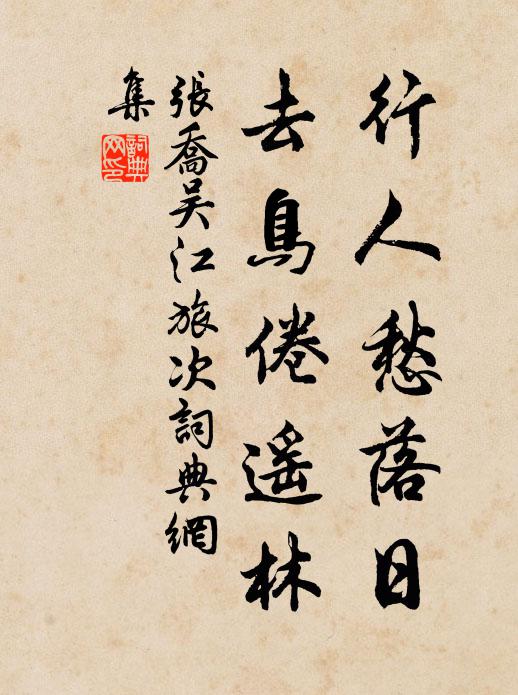 行人愁落日
去鳥倦遥林
張喬吴江旅次詞典網
集
詞典
网印